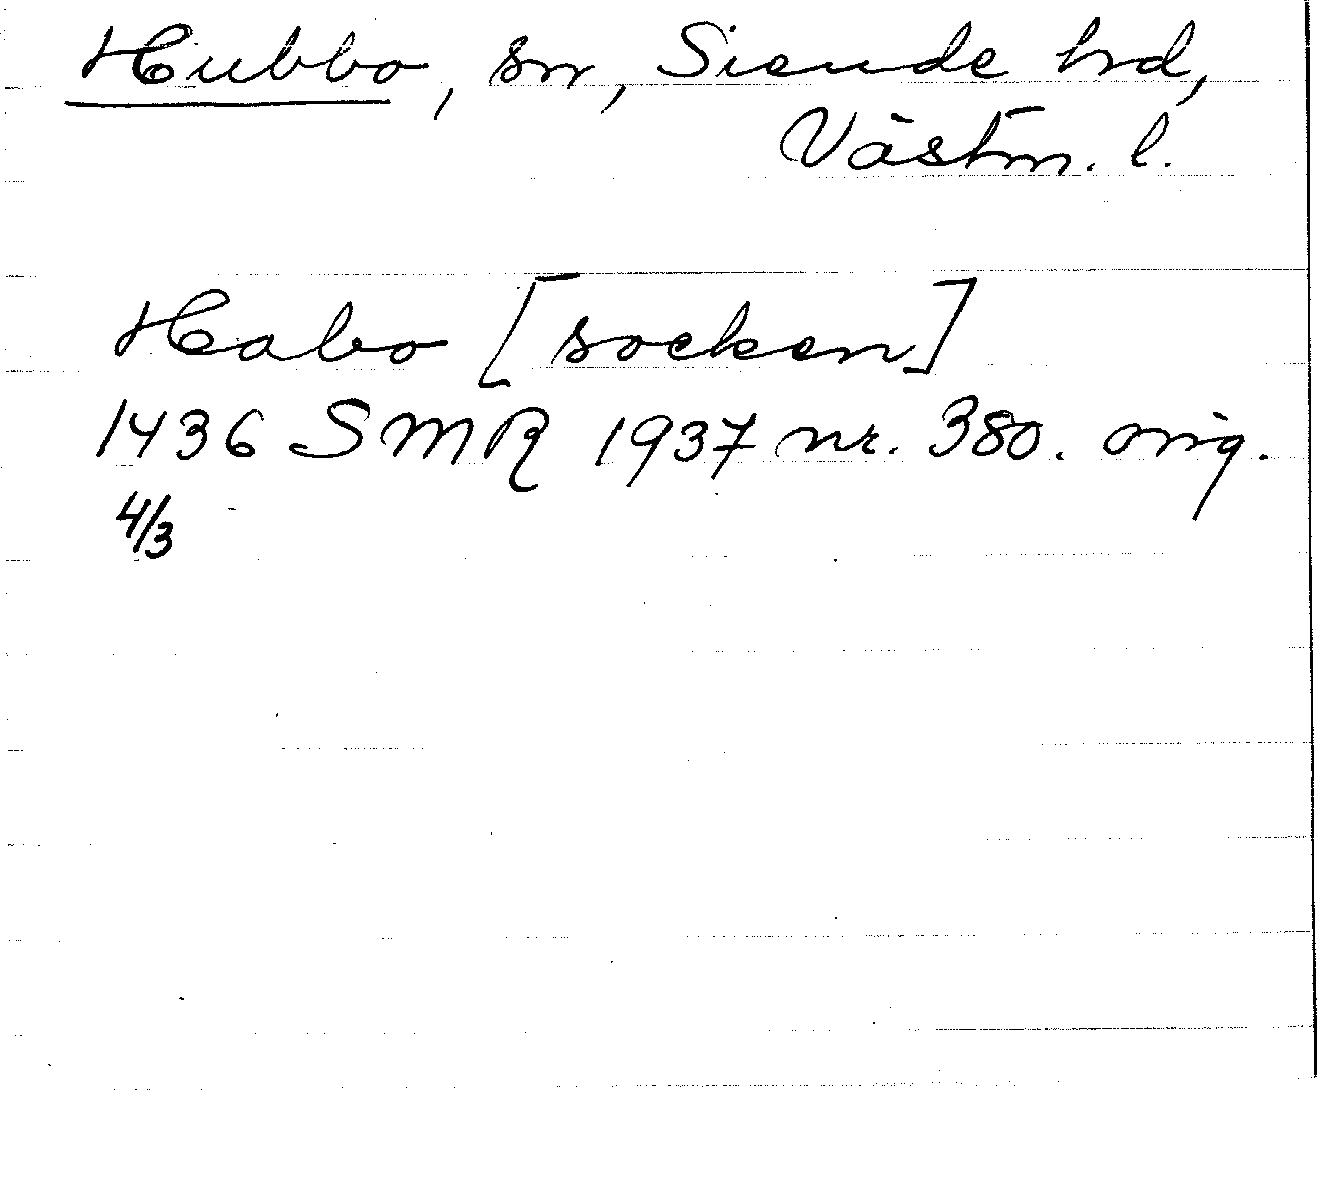 Hubbo, sn, Siende hrd,
Västm. l.
Habo [socken]
1436 SMR 1937 nr. 380. orig.
4/3